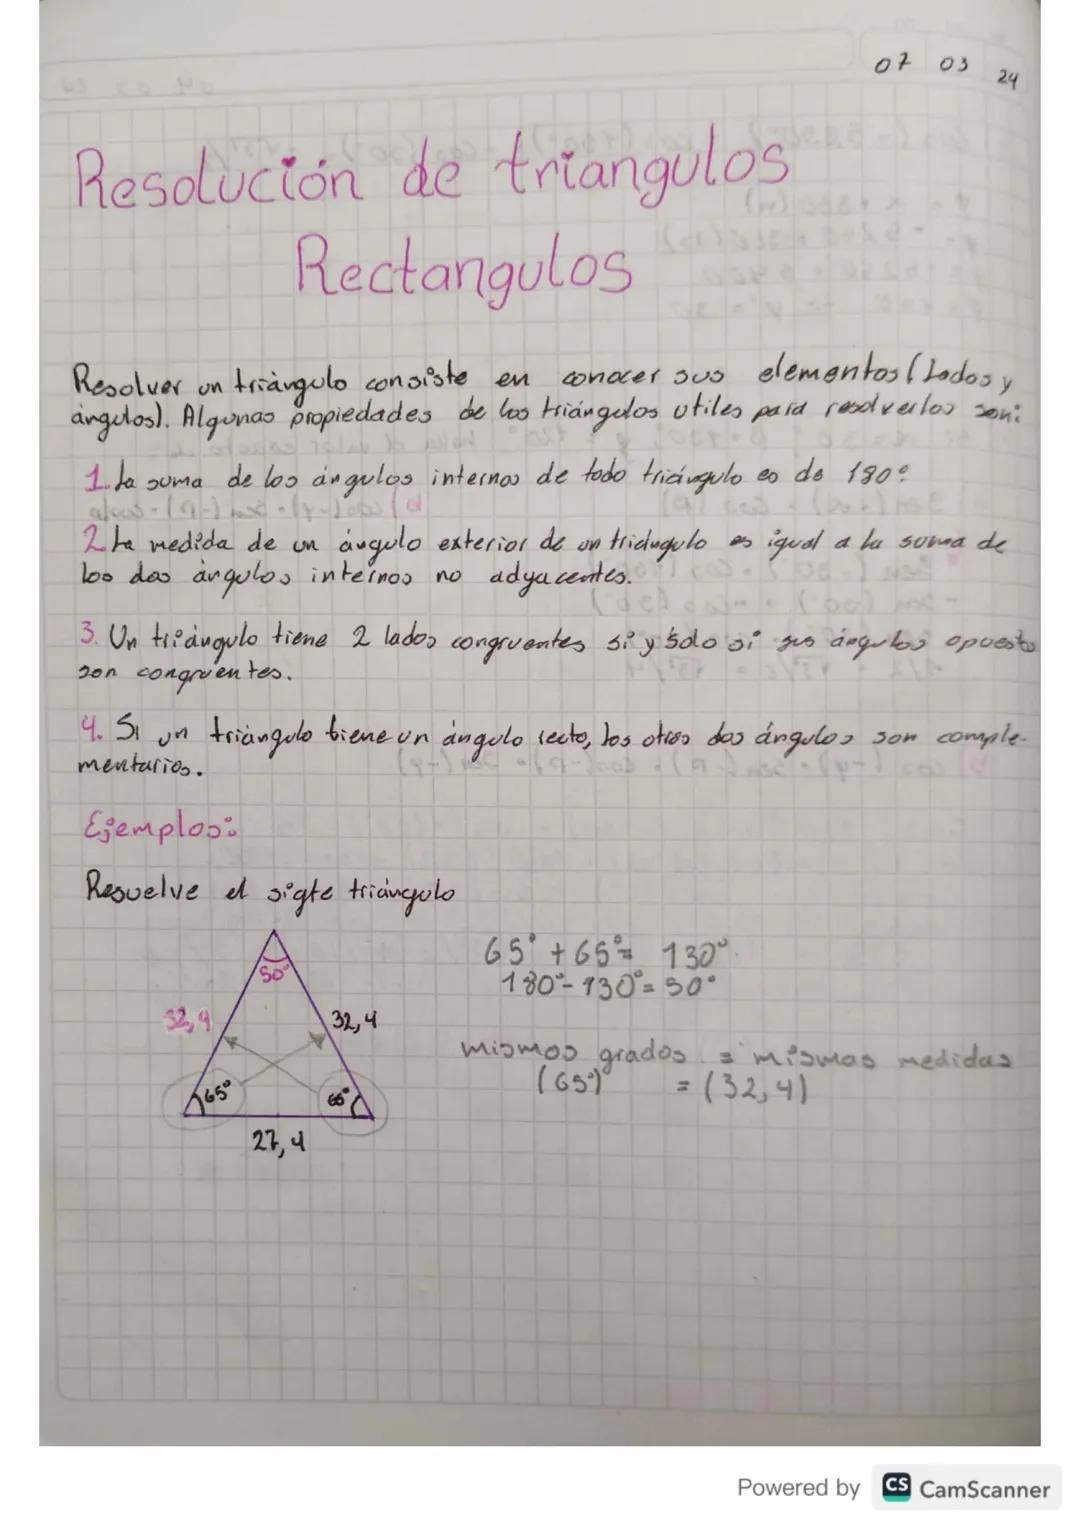 07 03 24
Resolución de triangulos
Rectangulos
Resolver un triángulo consiste en conocer sus elementos (Lados y
ángulos). Algunas propiedades de los triángulos utiles para resolverlos son:
1. La suma de los ángulos internos de todo triángulo es de 180°
2. La medida de un ángulo exterior de un triángulo es igual a la suma de
los dos ángulos internos no adyacentes.
3. Un triángulo tiene 2 lados congruentes si y solo si sus ángulos opuesto
son congruentes.
4. Si un triángulo tiene un ángulo recto, los otros dos ángulos son comple-
mentarios.
Ejemplos:
Resuelve el sigte triángulo
50°
32,4
32,4
65°
65°
27,4
65° + 65° = 130°
180° - 130° = 50°
mismos grados = mismas medidas
(65°) = (32,4)
Powered by CS CamScanner